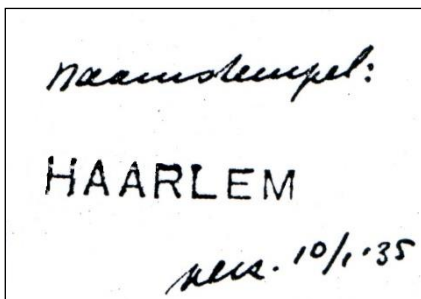 Naamstempel:
HAARLEM
verz. 10/1·35